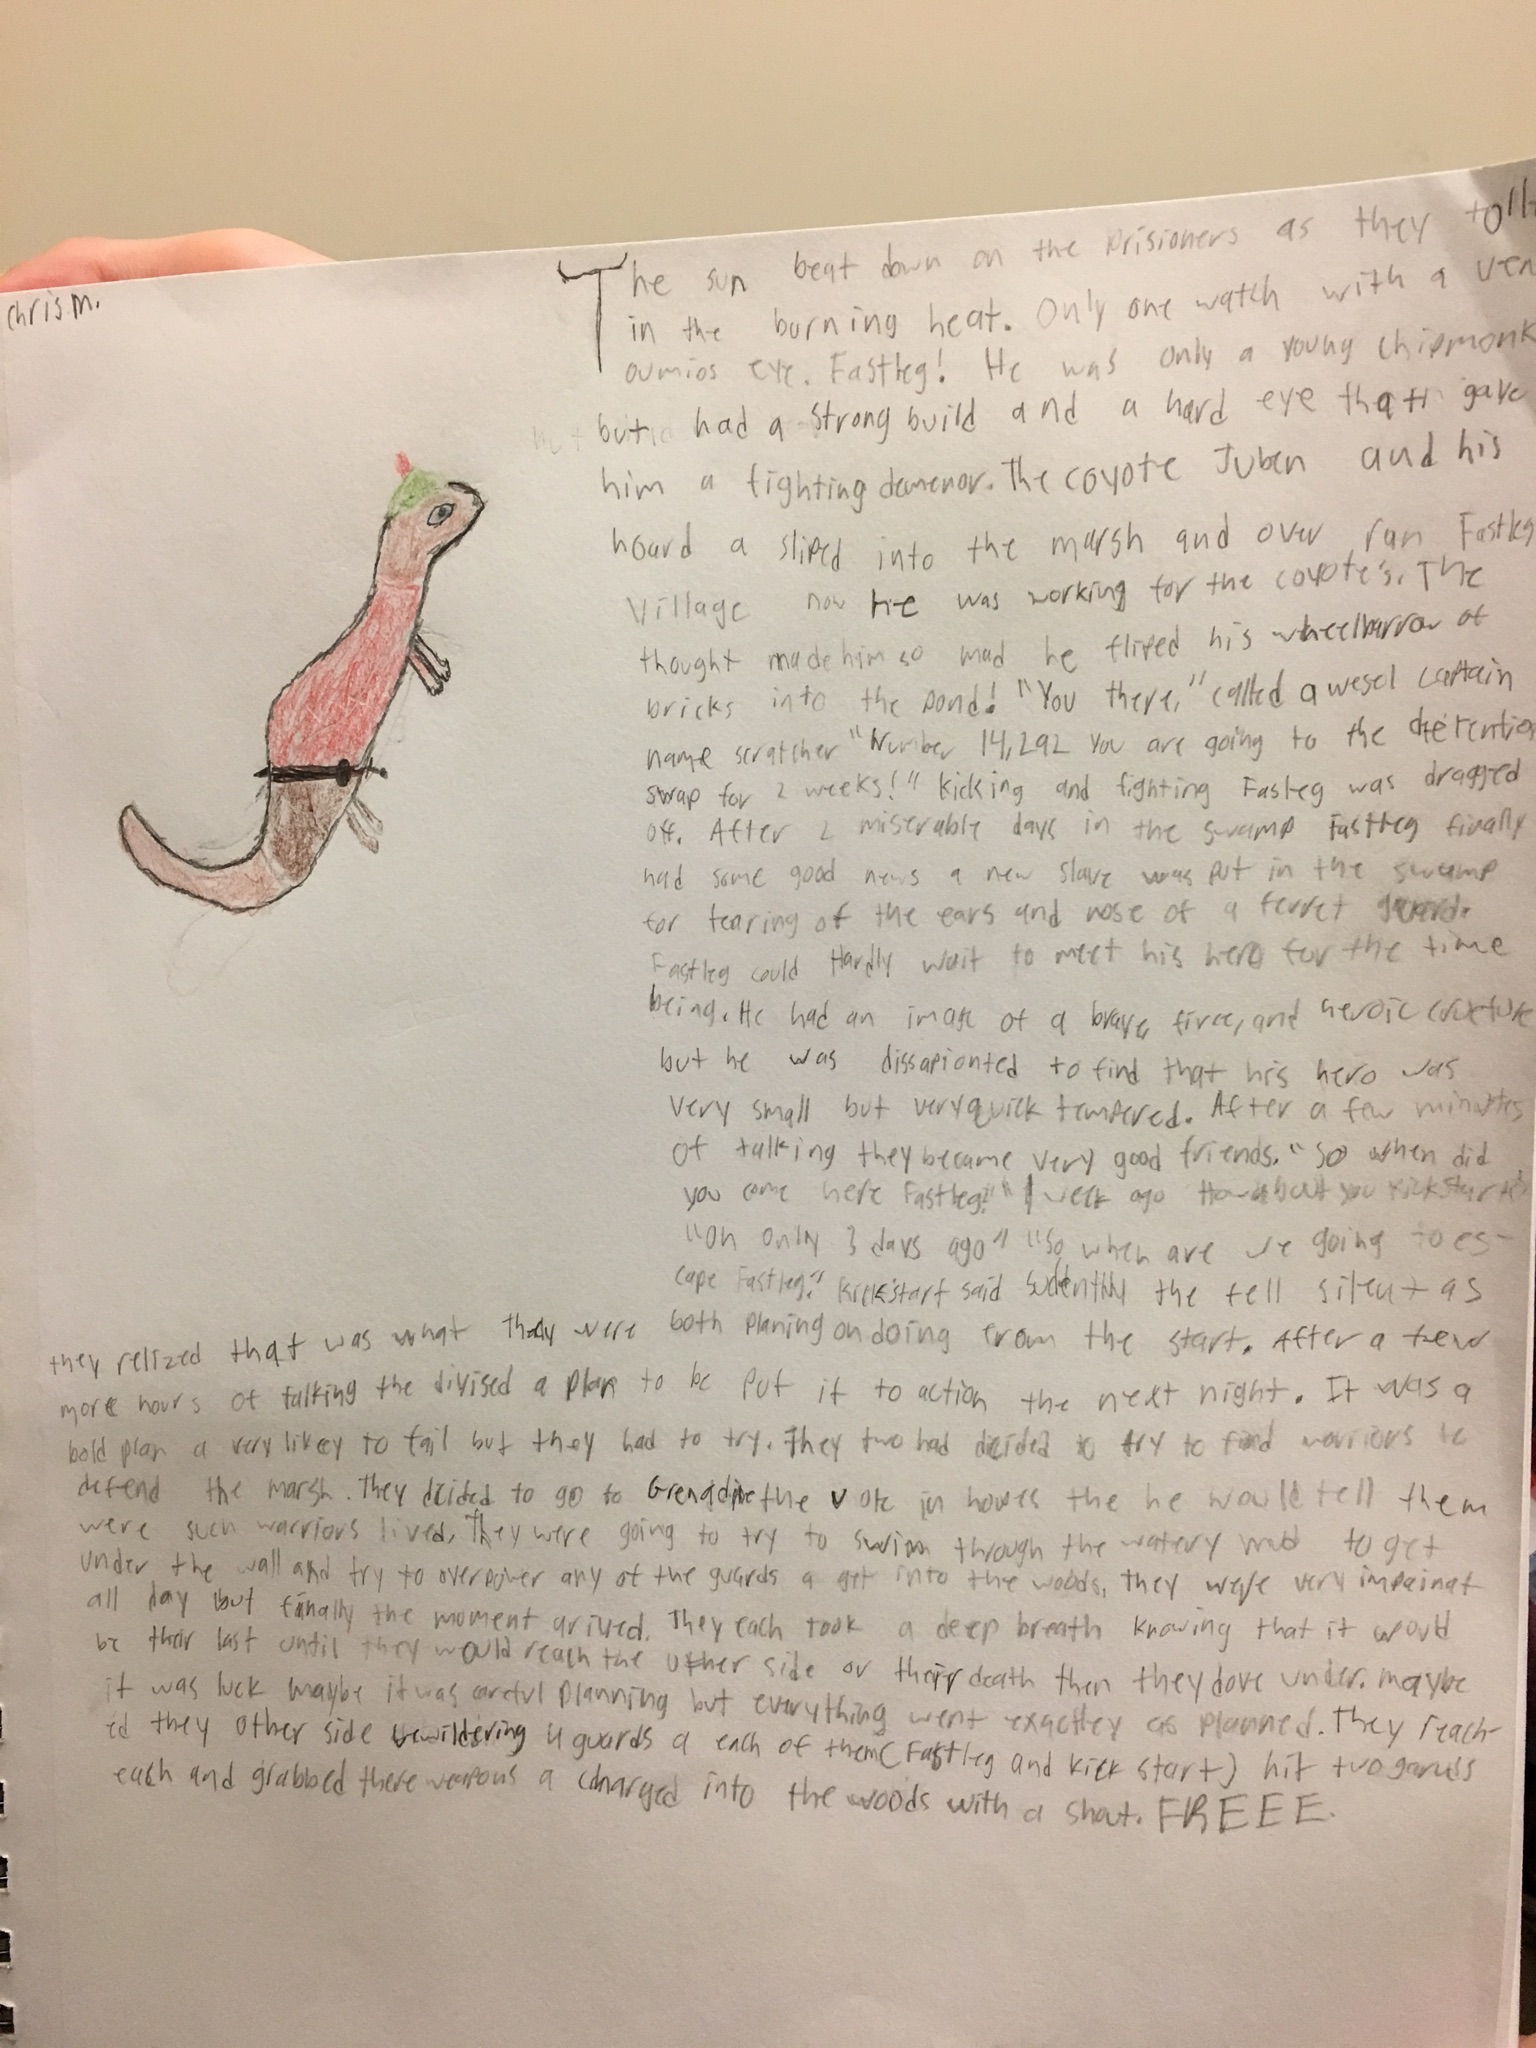 Chris M.
The sun beat down on the prisioners as they toll
in the burning heat. Only one watch with a ven
oumios eye. Fastleg! He was only a young chipmonk
but had a strong build and a hard eye that gave
him a fighting demenor. The coyote Juben and his
hourd a sliped into the marsh and over ran Fastleg
village now He was working for the coyote's. The
thought made him so mad he fliped his wheelbarrow of
bricks into the pond! "You there," called a wesel captain
name scratcher "Number 14,292 you are going to the detention
swap for 2 weeks!" kicking and fighting Fasleg was dragged
off. After 2 miserable days in the swamp Fastleg finally
had some good news a new slave was put in the swamp
for tearing of the ears and nose of a ferret guard.
Fastleg could Hardly wait to meet his hero for the time
being. He had an image of a brave, firce, and heroic
but he was dissapionted to find that his hero was
very small but very quick tempered. After a few minuttes
of talking they became very good friends. "So when did
you come here Fastleg?" "1 week ago How about you Kickstart"
"oh only 3 days ago" "So when are we going to es-
cape Fastleg?" Kickstart said the fell silent as
they relized that was what they were both planing on doing from the start. After a few
more hours of talking the divised a plan to be put if to action the next night. It was a
bold plan a very likey to fail but they had to try. They two had dicided to try to find worriors to
defend the marsh. They dicided to go to Grenadine the vole in the he would tell them
were such warriors lived, They were going to try to swim through the watery mud to get
under the wall and try to overpower any of the guards a get into the woods, they were very
all day but finally the moment arived. They each took a deep breath knowing that it would
be their last until they would reach the other side or their death then they dove under. maybe
it was luck maybe it was careful planning but everything went exactley as planned. They reach-
ed they other side bewildering 4 guards a each of them (Fastleg and kick start) hit two
each and grabbed there weapons a charged into the woods with a shout. FREEE.